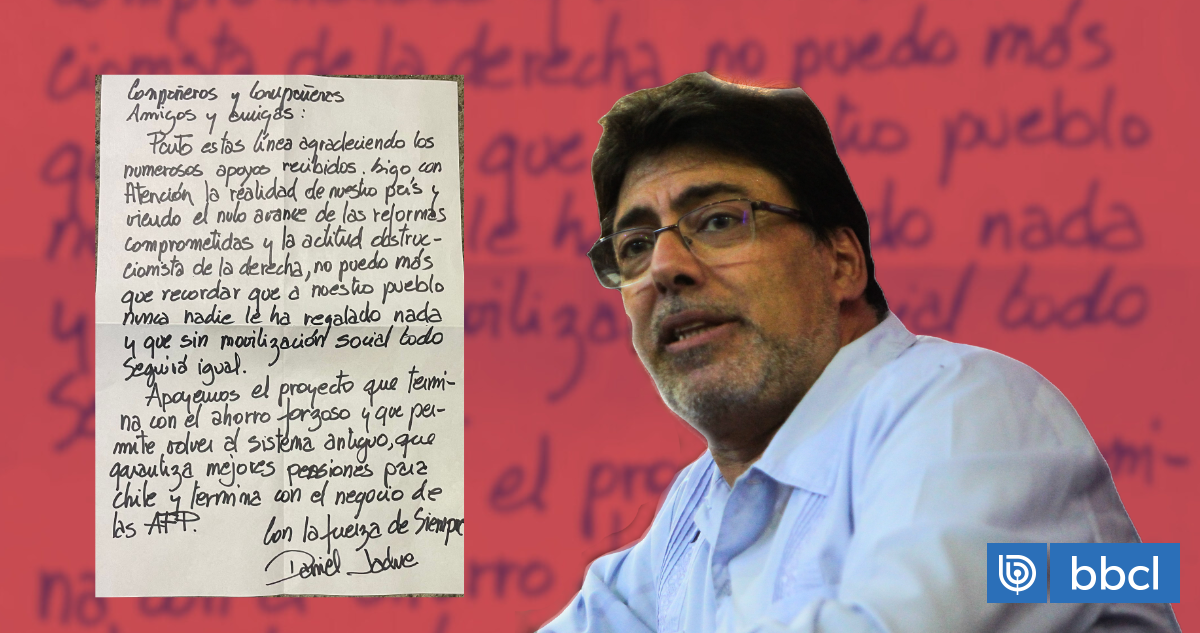 Compañeros y Compañeras
Amigos y amigas:
Pauto estas línea agradeciendo los
numerosos apoyos recibidos. Sigo con
Atención la realidad de nuestro país y
viendo el nulo avance de las reformas
comprometidas y la actitud obstruc-
cionista de la derecha, no puedo más
que recordar que a nuestro pueblo
nunca nadie le ha regalado nada
y que sin movilización social todo
seguirá igual.
Apoyemos el proyecto que termi-
na con el ahorro forzoso y que per-
mite volver al sistema antiguo, que
garantiza mejores pensiones para
chile y termina con el negocio de
las AFP.
Con la fuerza de Siempre
Daniel Jadue
bbcl